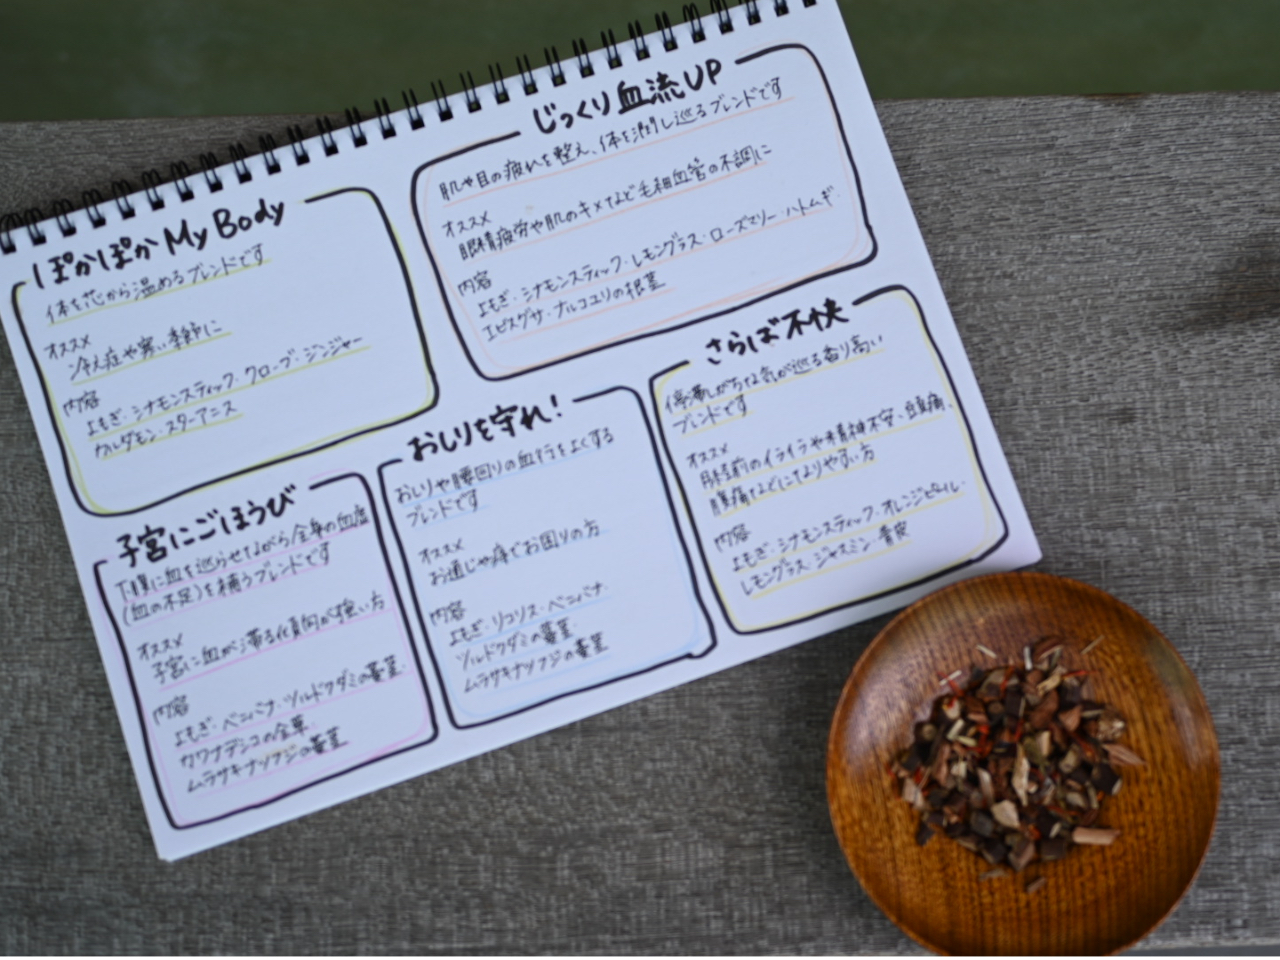 ぽかぽか My Body
体を芯から温めるブレンドです
オススメ
冷え症や寒い季節に
内容
よもぎ・シナモンスティック・クローブ・ジンジャー
カルダモン・スターアニス
じっくり血流UP
肌や目の疲れを整え、体を潤し巡るブレンドです
オススメ
眼精疲労や肌のキメなど毛細血管の不調に
内容
よもぎ・シナモンスティック・レモングラス・ローズマリー・ハトムギ
エビスグサ・ナルコユリの根茎
子宮にごほうび
下腹に血を巡らせながら全身の血虚
(血の不足)を補うブレンドです
オススメ
子宮に血が滞る傾向が強い方
内容
よもぎ・ベニバナ・ツルドクダミの蔓茎・
カワラナデシコの全草・
ムラサキナツフジの蔓茎
おしりを守れ!
おしりや腰回りの血行をよくする
ブレンドです
オススメ
お通じや痔でお困りの方
内容
よもぎ・リコリス・ベニバナ・
ツルドクダミの蔓茎・
ムラサキナツフジの蔓茎
さらば不快
停滞しがちな気が巡る香り高い
ブレンドです
オススメ
月経前のイライラや精神不安・頭痛、
腹痛などになりやすい方
内容
よもぎ・シナモンスティック・オレンジピール・
レモングラス・ジャスミン・青皮